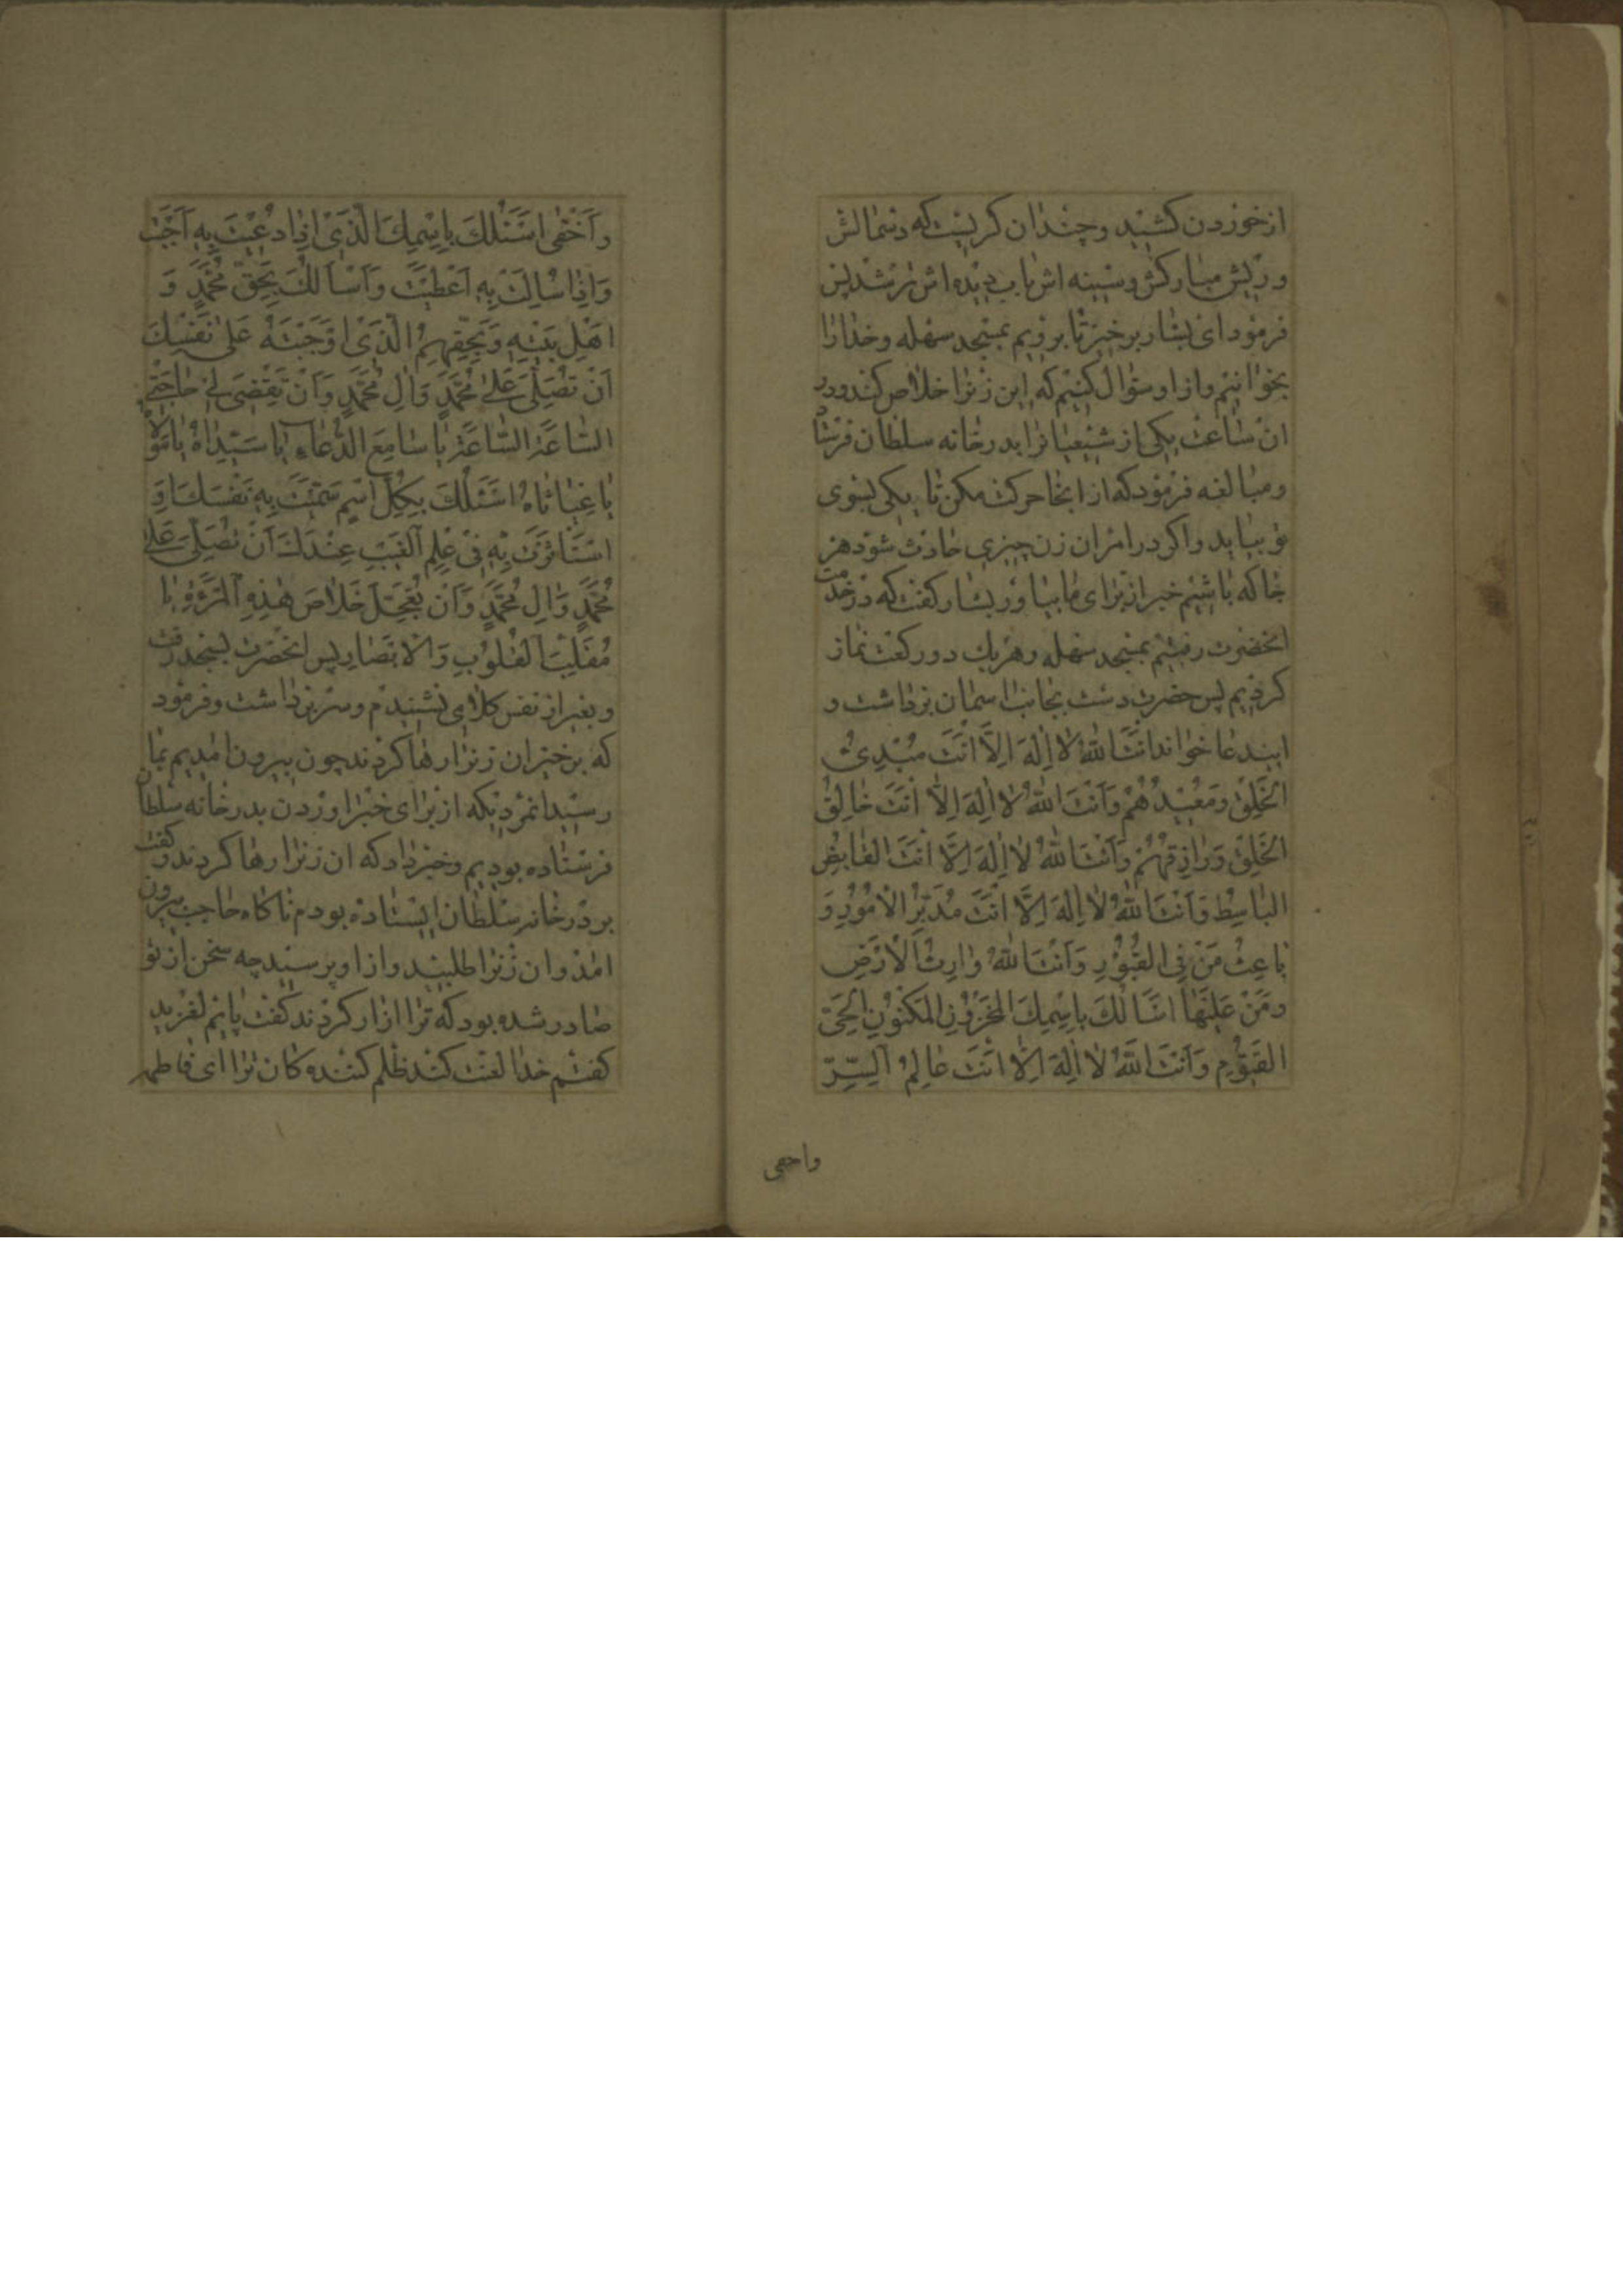 از خوردن کشید و چندان کریست که دستمالش
و ریش مبارکش و سینه اش باب دیده اش تر شد پس
فرمود ای بشار برخیز تا برویم بمسجد سهله و خدا را
بخوانیم و از او سؤال کنیم که این زنرا خلاص کند و در
ان ساعت یکی از شیعیانرا بدرخانه سلطان فرستاد
و مبالغه فرمود که از انجا حرکت مکن تا یکی بسوی
تو بیاید و اکر در امر ان زن چیزی حادث شود هر
جا که باشیم خبر انبرای ما بیاور بشار کفت که در خدمت
انحضرت رفتیم بمسجد سهله و هر یک دو رکعت نماز
کردیم پس حضرت دست بجانب اسمان برداشت و
ایندعا خواند اَنْتَ اللهُ لا اِلٰهَ اِلاَّ اَنْتَ مُبْدِئُ
الخَلْقِ وَمُعِیْدُهُمْ وَاَنْتَ اللهُ لا اِلٰهَ اِلاَّ اَنْتَ خَالِقُ
الخَلْقِ وَرَازِقُهُمْ وَاَنْتَ اللهُ لا اِلٰهَ اِلاَّ اَنْتَ القَابِضُ
البَاسِطُ وَاَنْتَ اللهُ لا اِلٰهَ اِلاَّ اَنْتَ مُدَبِّرُ الْاُمُوْرِ وَ
بَاعِثُ مَنْ فِی القُبُوْرِ وَاَنْتَ اللهُ وَارِثُ الْاَرْضِ
وَمَنْ عَلَیْهَا اَسْاَلُكَ بِاسْمِكَ المَخْزُوْنِ المَکْنُوْنِ الْحَیِّ
القَیُّوْمِ وَاَنْتَ اللهُ لا اِلٰهَ اِلاَّ اَنْتَ عَالِمُ السِّرِّ
واخفی
وَاَخْفٰی اَسْئَلُكَ بِاِسْمِكَ الَّذِیْ اِذَا دُعِیْتَ بِهِ اَجَبْتَ
وَاِذَا سُاِلْتَ بِهِ اَعْطَیْتَ وَاَسْاَلُكَ بِحَقِّ مُحَمَّدٍ وَ
اَهْلِ بَیْتِهِ وَبِحَقِّهِمُ الَّذِیْ اَوْجَبْتَهُ عَلٰی نَفْسِكَ
اَنْ تُصَلِّیَ عَلٰی مُحَمَّدٍ وَاٰلِ مُحَمَّدٍ وَاَنْ تَقْضِیَ لِیْ حَاجَتِیْ
السَّاعَةَ السَّاعَةَ یَا سَامِعَ الدُّعَاءِ یَا سَیِّدَاهُ یَا مَوْلَاهُ
یَا غِیَاثَاهُ اَسْئَلُكَ بِکُلِّ اسْمٍ سَمَّیْتَ بِهِ نَفْسَكَ اَوِ
اسْتَاثَرْتَ بِهِ فِیْ عِلْمِ الْغَیْبِ عِنْدَكَ اَنْ تُصَلِّیَ عَلٰی
مُحَمَّدٍ وَاٰلِ مُحَمَّدٍ وَاَنْ تُعَجِّلَ خَلَاصَ هٰذِهِ الْمَرْءَةِ یَا
مُقَلِّبَ القُلُوْبِ وَالْاَبْصَارِ پس انحضرت بسجده رفت
و بغیر از نفس کلامی نشنیدم و سر برداشت و فرمود
که برخیز ان زنرا رها کردند چون بیرون امدیم بما
رسید انمردیکه از برای خبر اوردن بدرخانه سلطان
فرستاده بودیم و خبر داد که ان زنرا رها کردند و کفت
بر درخانه سلطان ایستاده بودم ناکاه حاجب بیرون
امد و ان زنرا طلبید و از او پرسید چه سخن از تو
صادر شده بود که ترا ازار کردند کفت پایم لغزید
کفتم خدا لعنت کند ظلم کننده کان ترا ای فاطمه